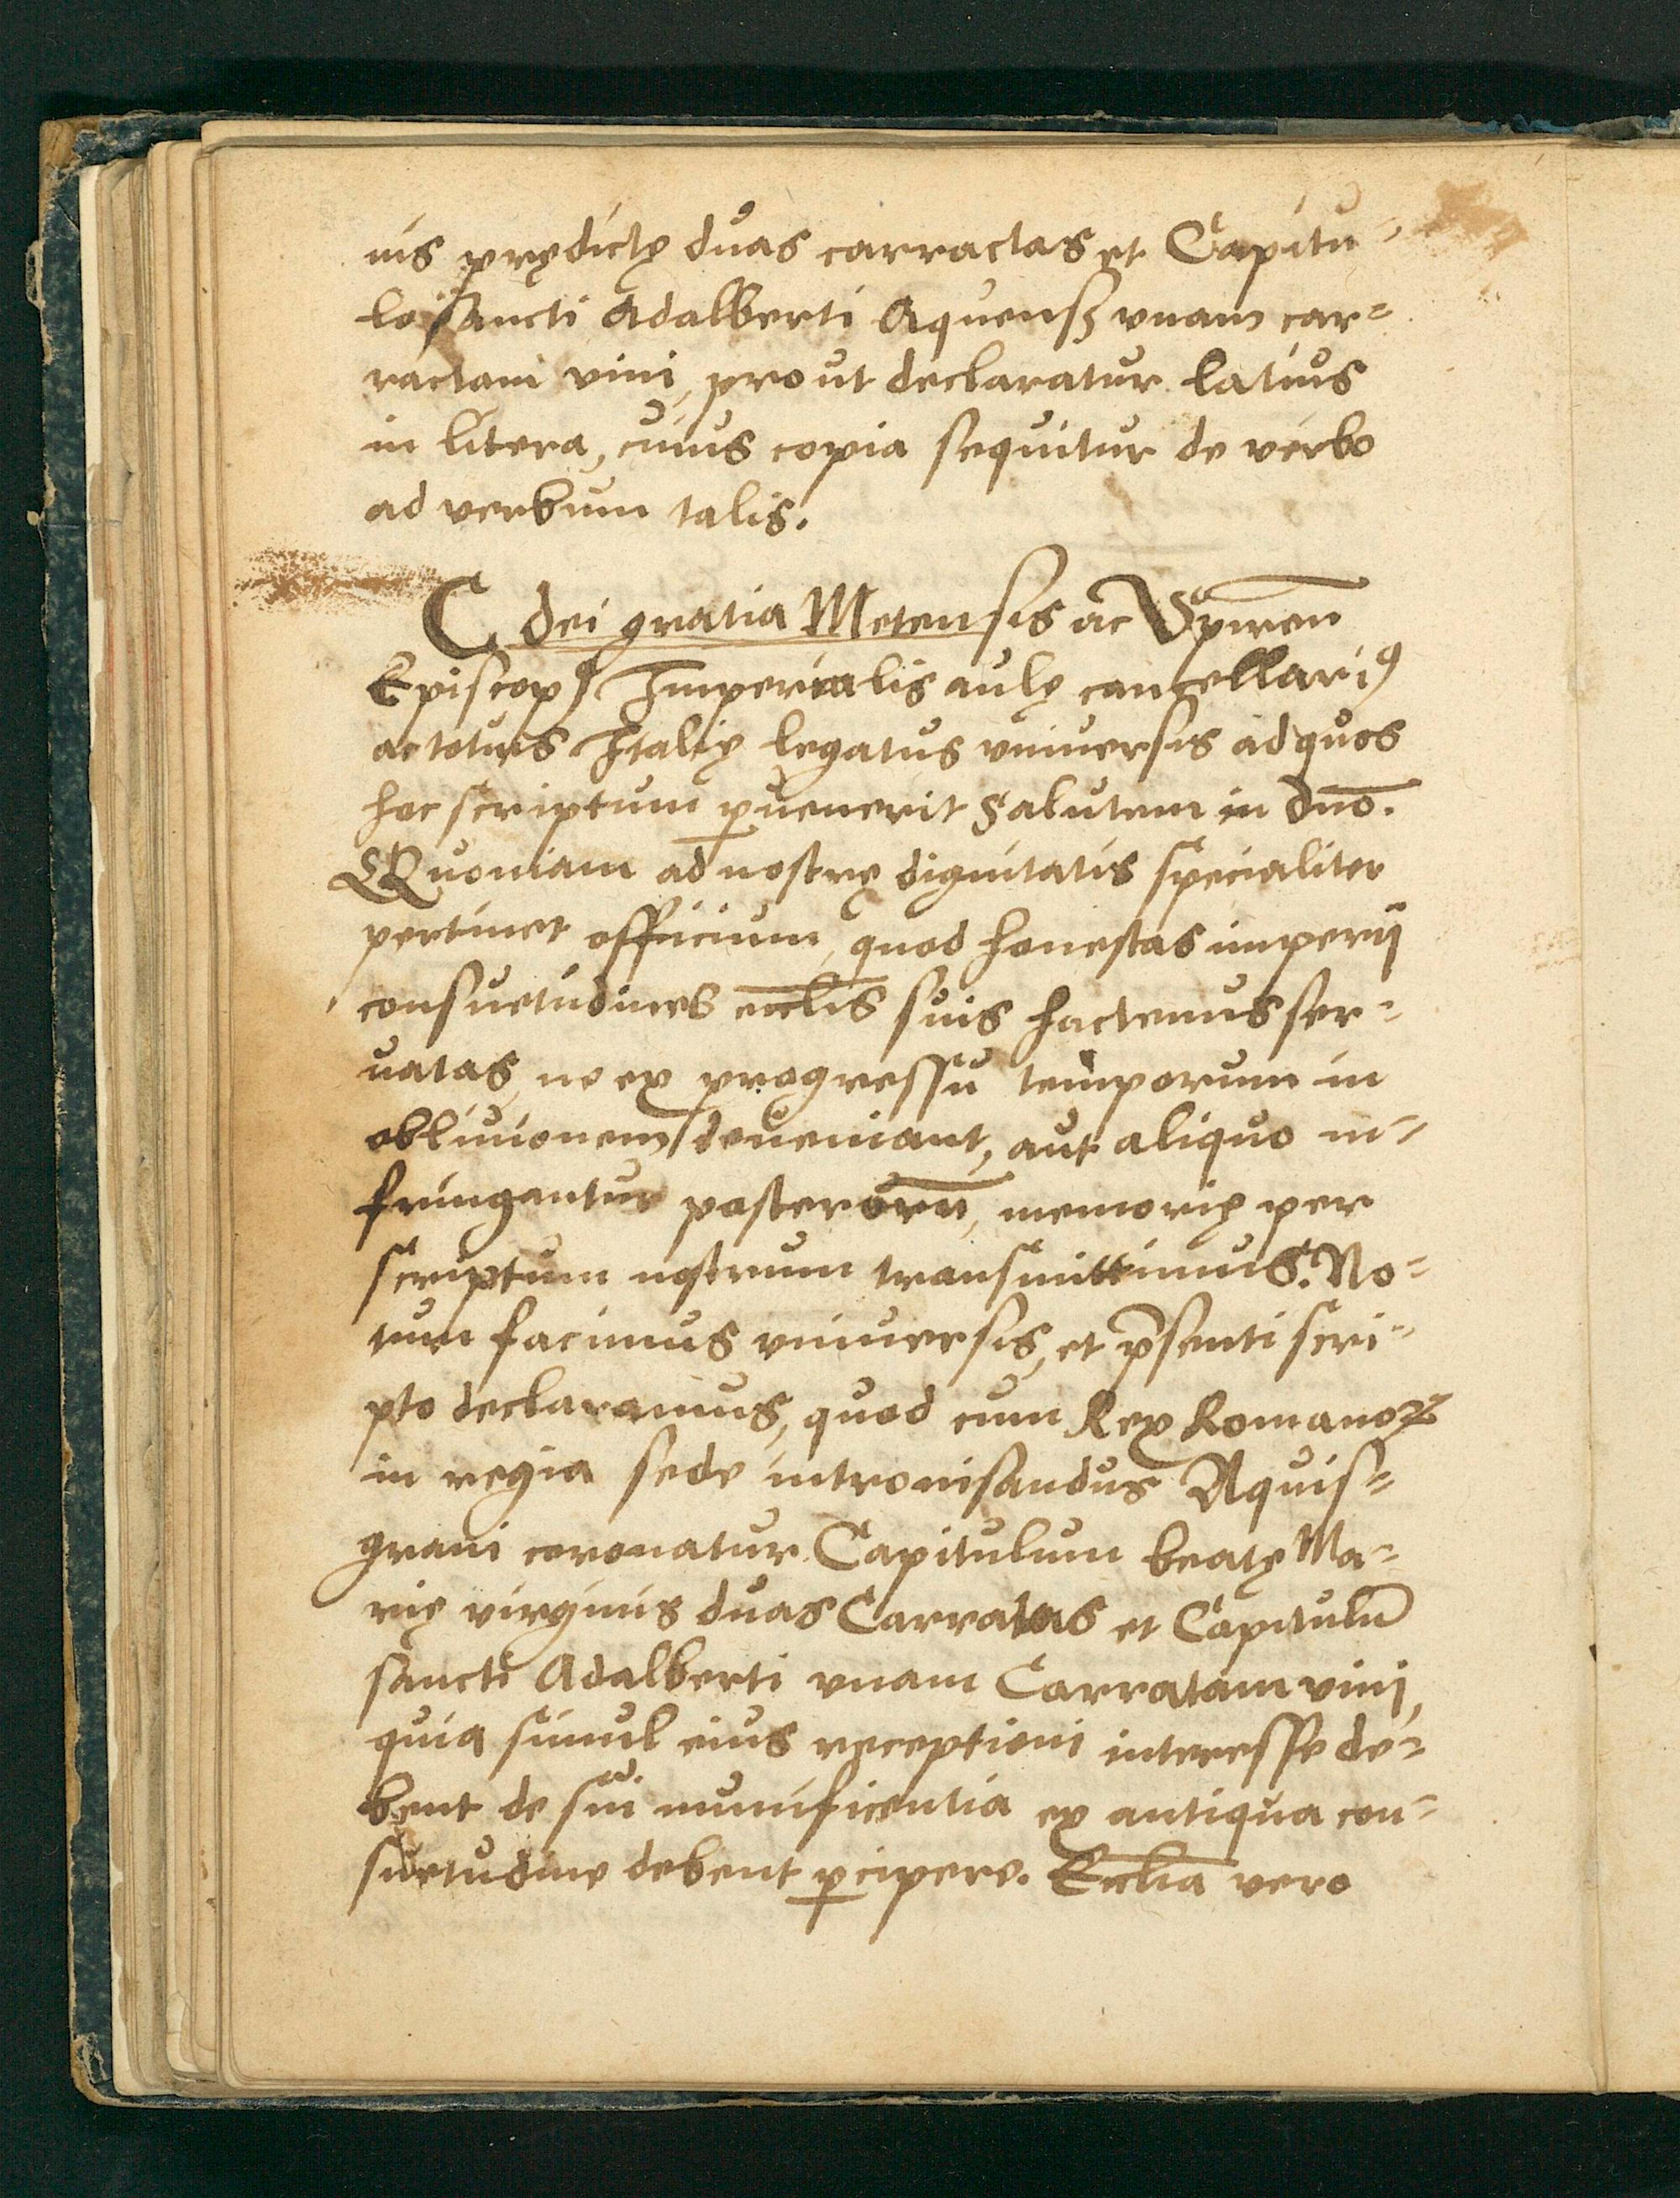 nis prędictę duas carractas et Capitu-
lo sancti Adalberti Aquensʒ vnam car-
ractam vini, prout declaratur latius
in litera, cuius copia sequitur de verbo
ad verbum talis.
C. dei gratia Metensis ac Spireñ
Episcopꝰ Imperialis aulę cancellariꝰ
ac totius Italię legatus vniuersis ad quos
hoc scriptum ꝑuenerit salutem in dño.
Quoniam ad nostrę dignitatis specialiter
pertinet officium, quod honestas imperij
consuetudines eccl̄is suis hactenus ser-
uatas, ne ex progressu temporum in
obliuionem deueniant, aut aliquo in-
fringantur posterorū, memorię per
scriptum nostrum transmittimus. No-
tum facimus vniuersis, et p̄senti scri-
pto declaramus, quod cum Rex Romanoꝝ
in regia sede intronisandus Aquis-
grani coronatur Capitulum beatę Ma-
rię virginis duas Carratas et Capitulū
sancti Adalberti vnam Carratam vini,
quia simul eius receptioni interesse de-
bent de sui munificentia ex antiqua con-
suetudine debent ꝑcipere. Eccl̄ia vero